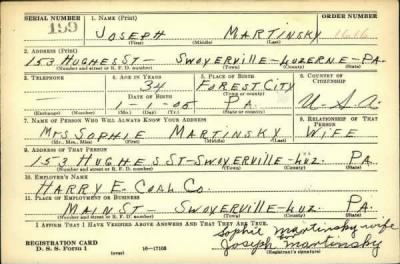 SERIAL NUMBER 1. NAME (Print) ORDER NUMBER
159 JOSEPH MARTINSKY 1616
(First) (Middle) (Last)
2. ADDRESS (Print)
153 HUGHES ST- SWOYERVILLE-LUZERNE-PA.
(Number and street or R. F. D. number) (Town) (County) (State)
3. TELEPHONE 4. AGE IN YEARS 5. PLACE OF BIRTH 6. COUNTRY OF CITIZENSHIP
34 FOREST CITY
DATE OF BIRTH (Town or county)
1-1-06 PA. U.S.A.
(Exchange) (Number) (Mo.) (Day) (Yr.) (State or country)
7. NAME OF PERSON WHO WILL ALWAYS KNOW YOUR ADDRESS 8. RELATIONSHIP OF THAT PERSON
MRS SOPHIE MARTINSKY WIFE
(Mr., Mrs., Miss) (First) (Middle) (Last)
9. ADDRESS OF THAT PERSON
153 HUGHES ST-SWOYERVILLE-LUZ. PA.
(Number and street or R. F. D. number) (Town) (County) (State)
10. EMPLOYER'S NAME
HARRY E- COAL CO.
11. PLACE OF EMPLOYMENT OR BUSINESS
MAIN ST- SWOYERVILLE-LUZ. PA
(Number and street or R. F. D. number) (Town) (County) (State)
I AFFIRM THAT I HAVE VERIFIED ABOVE ANSWERS AND THAT THEY ARE TRUE.
Sophie Martinsky wife
Joseph Martinsky
REGISTRATION CARD
D. S. S. Form 1 (over) 16-17105 (Registrant's signature)